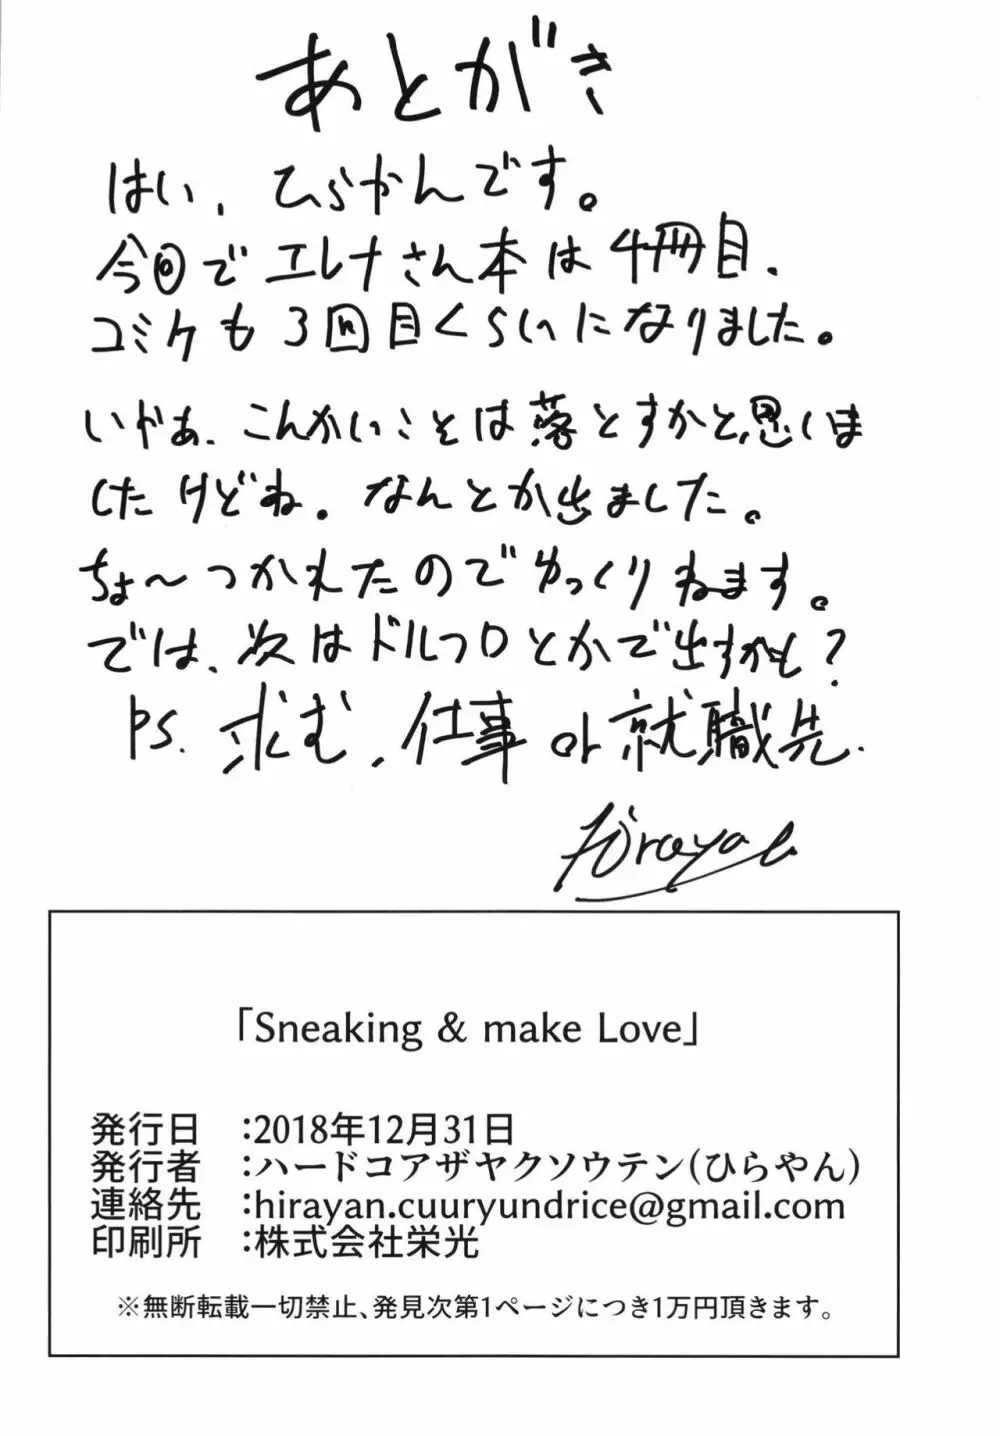 あとがき
はい、ひらかんです。
今回でエレナさん本は4冊目、
コミケも3回目くらいになりました。
いやあ、こんかいことは落とすかと思いま
したけどね。なんとか出ました。
ちょ〜つかれたのでゆっくりねます。
では、次はドルフロとかで出すかも?
PS. 求む、仕事 or 就職先.
Hirayan
「Sneaking & make Love」
発行日　:2018年12月31日
発行者　:ハードコアザヤクソウテン(ひらやん)
連絡先　:hirayan.cuuryundrice@gmail.com
印刷所　:株式会社栄光
※無断転載一切禁止、発見次第1ページにつき1万円頂きます。